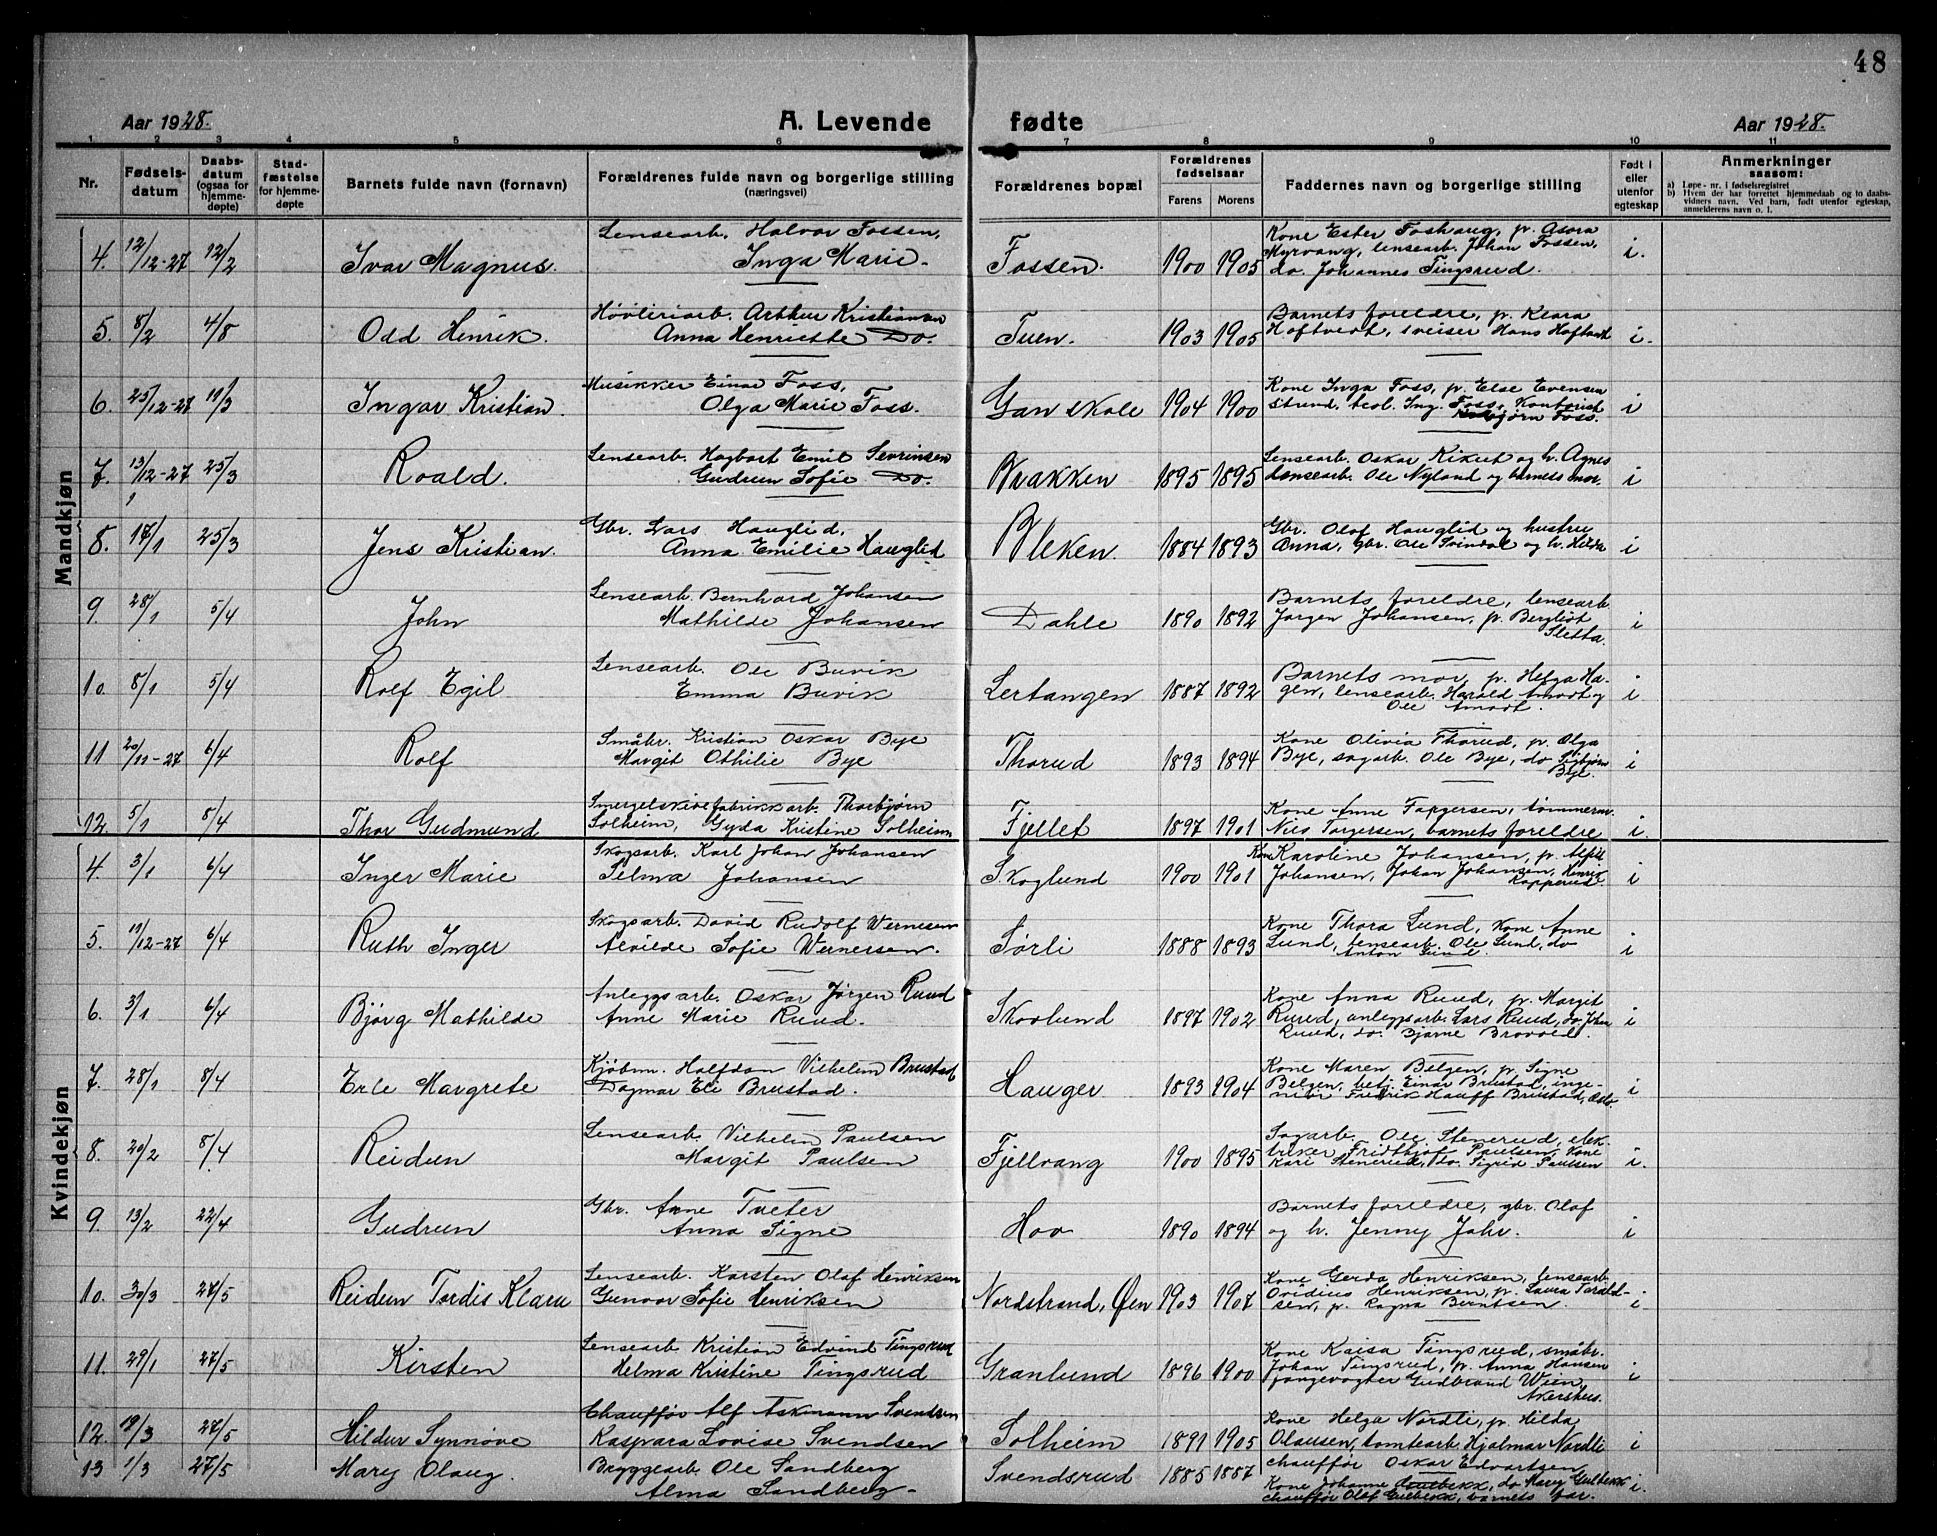 48
Aar 1928.
A. Levende fødte
Aar 1928.
1 2 3 4 5 6 7 8 9 10 11
Nr.
Fødsels-
datum
Daabs-
datum
(ogsaa for
hjemme-
døpte)
Stad-
fæstelse
for hjemme-
døpte
Barnets fulde navn (fornavn)
Forældrenes fulde navn og borgerlige stilling
(næringsvei)
Forældrenes bopæl
Forældrenes
fødselsaar
Farens Morens
Faddernes navn og borgerlige stilling
Født i
eller
utenfor
egteskap
Anmerkninger
saasom:
a) Løpe-nr. i fødselsregistret
b) Hvem der har forrettet hjemmedaab og to daabs-
vidners navn. Ved barn, født utenfor egteskap,
anmelderens navn o. l.
Mandkjøn
4. 12/12-27 12/2 Ivar Magnus.
Lensearb. Halvor Fossen,
Inga Marie
Fossen. 1900 1905
Kone Ester Foshaug, p. Asora
Myrvang, lensearb. Johan Fossen,
do. Johannes Tingsrud.
i.
5. 8/2 4/8 Odd Henrik.
Høvleriarb. Arthur Kristiansen
Anna Henriette Do.
Tuen. 1903 1905
Barnets foreldre, p. Klara
Hoftvedt, sveiser Hans Hoftvedt
i.
6. 25/12-27 11/3 Ingar Kristian.
Musikker Einar Foss,
Olga Marie Foss.
Gan skole 1904 1900
Kone Inga Foss, p. Else Evensen
Strand, teol. Ing. Foss, Kontorist
Foss.
i
7. 13/12-27 25/3 Roald.
Lensearb. Hagbart Emil Sevrinsen
Gudrun Sofie Do.
Brakken 1895 1895
Lensearb. Oskar Kikut og h. Agnes
Lensearb. Ole Nyland og barnets mor.
i
8. 17/1 25/3 Jens Kristian.
Gbr. Lars Hauglid,
Anna Emilie Hauglid
Bleken. 1884 1893
Gbr. Olaf Hauglid og hustru
Anna, gbr. Ole Svindal og h. Hilda
i
9 28/1 5/4 John
Lensearb. Bernhard Johansen
Mathilde Johansen
Dahle 1890 1892
Barnets foreldre, lensearb.
Jørgen Johansen, p. Bergliot
Sletta.
i
10. 8/1 5/4 Rolf Egil
Lensearb. Ole Buvik
Emma Buvik
Lertangen 1887 1892
Barnets mor, p. Helga Ha-
gen, lensearb. Harald Amodt og
Ole Amodt.
i
11 20/11-27 6/4 Rolf
Småbr. Kristian Oskar Bye
Margit Othilie Bye
Thorud 1893 1894
Kone Olivia Thorud, p. Olga
Bye, sagarb. Ole Bye, do Sigbjørn
Bye.
i
12. 5/1 8/4 Thor Gudmund
Smergelskivefabrikkarb. Thorbjørn
Solheim, Gyda Kristine Solheim
Fjellet 1897 1901
Kone Anne Torgersen, tømmerm.
Nils Torgersen, barnets foreldre
i.
Kvindekjøn
4. 3/1 6/4 Inger Marie
Skogsarb. Karl Johan Johansen
Selma Johansen
Skoglund 1900 1901
Kone Karoline Johansen, p. Alfild
Johansen, Johan Johansen, Henrik
Kopperud.
i
5. 19/12-27 6/4 Ruth Inger
Skogsarb. David Rudolf Wernersen
Alvilde Sofie Wernersen.
Sørli 1888 1893
Kone Thora Lund, Kone Anne
Lund, lensearb. Ole Lund, do
Anton Lund.
i
6. 3/1 6/4 Bjørg Mathilde
Anleggsarb. Oskar Jørgen Ruud
Anne Marie Ruud.
Skovlund 1897 1902
Kone Anna Ruud, p. Margit
Ruud, anleggsarb. Lars Ruud, do. Johan
Ruud, do. Bjarne Brovold.
i
7. 28/1 8/4 Erle Margrete
Kjøbm. Halfdan Vilhelm Brustad
Dagmar Ele Brustad.
Hauger 1893 1904
Kone Maren Belgen, p. Signe
Belgen, betj. Einar Brustad, inge-
niør Fredrik Hauff Brustad, Oslo.
i
8. 20/2 8/4 Reidun
Lensearb. Vilhelm Paulsen
Margit Paulsen
Fjellvang 1900 1895
Sagarb. Ole Stenerud, elek-
triker Fridthjof Paulsen, Kone
Kari Stenerud, do. Sigrid Paulsen
i.
9. 13/2 22/4 Gudrun
Gbr. Arne Tveter
Anna Signe
Hov 1890 1894
Barnets foreldre, gbr. Olaf
og h. Jenny Jahr.
i
10. 30/3 27/5 Reidun Tordis Klara
Lensearb. Karsten Olaf Henriksen
Gunvor Sofie Henriksen
Nordstrand, Øen 1903 1907
Kone Gerda Henriksen, lensearb.
Ovidius Henriksen, p. Laura Torald-
sen, p. Ragna Berntsen.
i
11. 29/1 27/5 Kirsten
Lensearb Kristian Edvind Tingsrud
Helma Kristine Tingsrud
Granlund 1896 1900
Kone Kaisa Tingsrud, småbr.
Johan Tingsrud, p. Anna Hansen
fangevogter Gudbrand Wien,
Akershus.
i
12. 19/3 27/5 Hildur Synnøve
Chauffør Alf Askmann Svendsen
Kaspara Lovise Svendsen
Solheim 1891 1905
Kone Helga Nordli, p. Hilda
Olausen, tomtearb. Hjalmar Nordli
chauffør Oskar Edvartsen
i
13 1/3 27/5 Mary Olaug.
Bryggearb. Ole Sandberg
Alma Sandberg
Svendsrud 1885 1887
Kone Johanne Gulbekk, do Mary Gulbekk
chauffør Olaf Gulbekk, barnets far.
i.